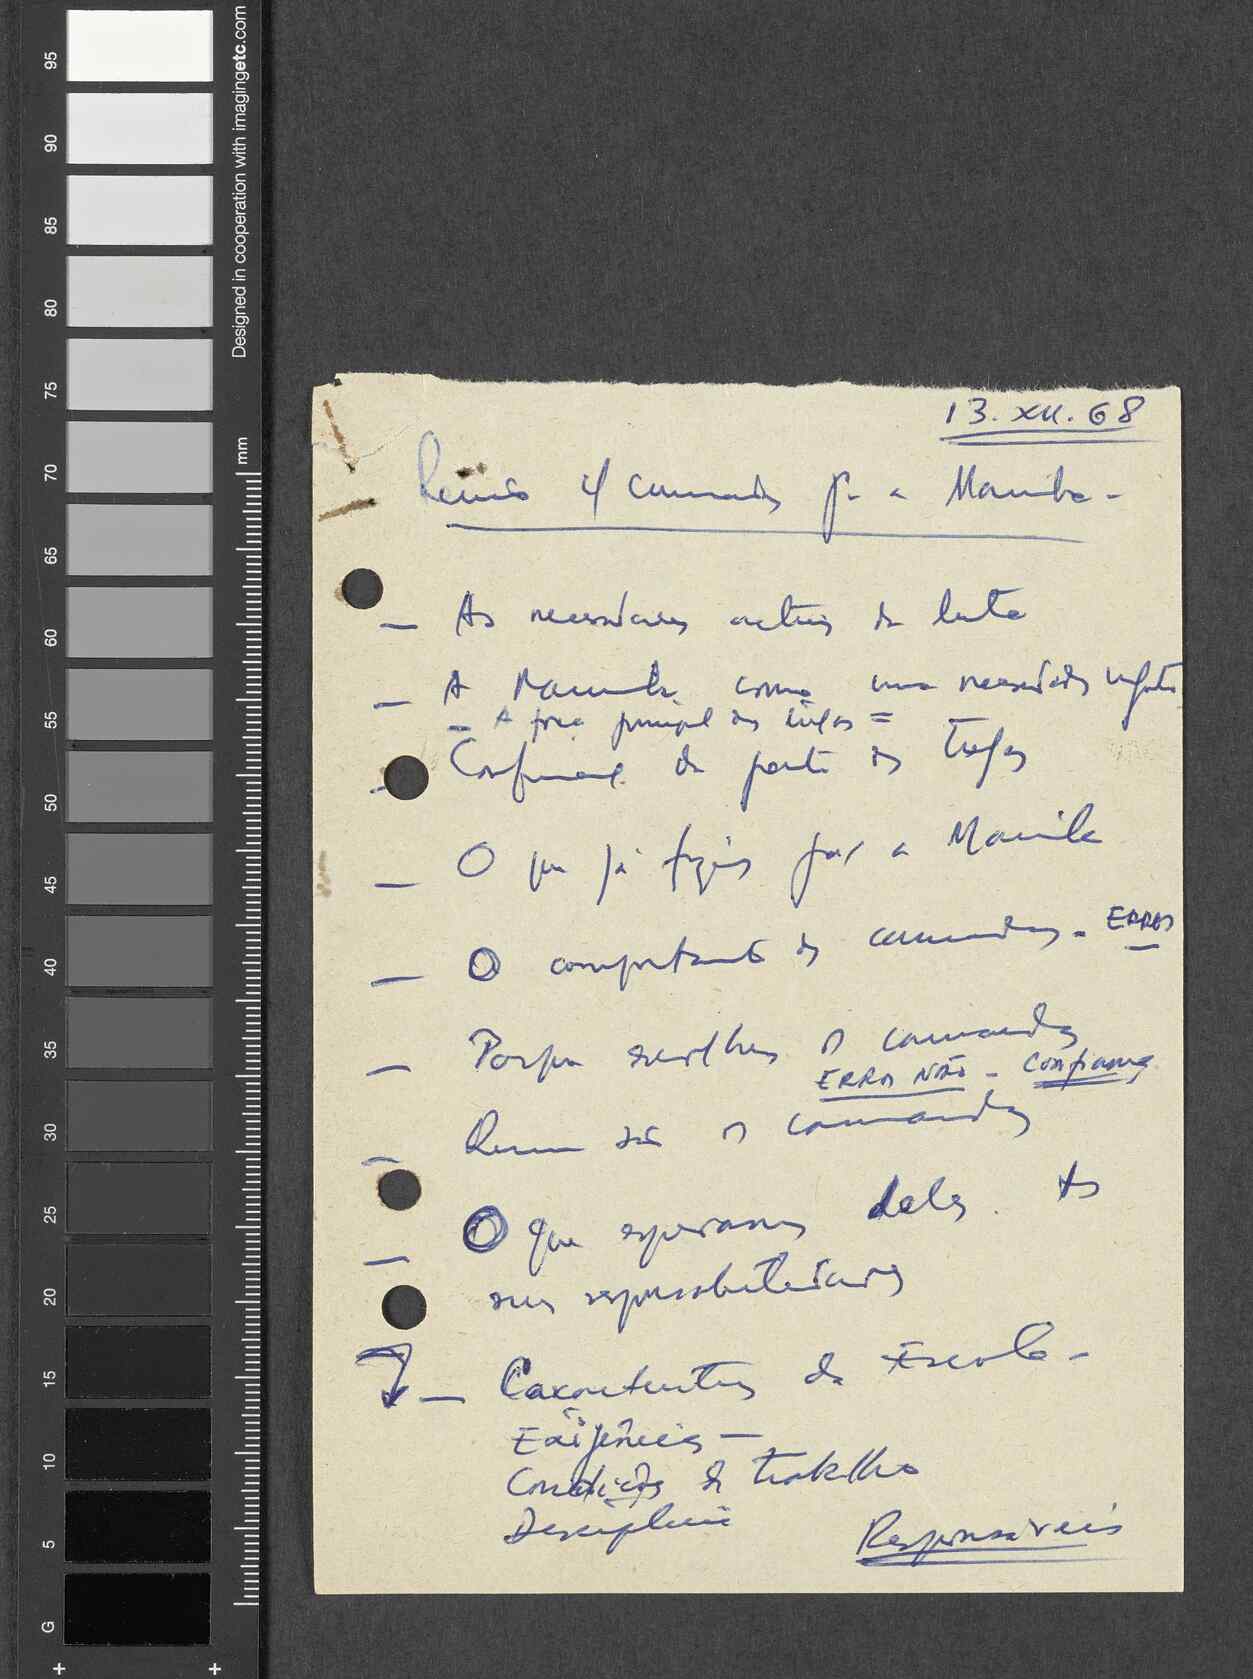 95
90
85
80
75
70
65
60
55
50
45
40
35
30
25
20
15
10
5
G
Designed in cooperation with imagingetc.com
mm
13.XII.68
Reunião c/ camaradas p. a Marinha -
— As necessidades actuais da luta
— A Marinha como uma necessidade urgente
— A força principal dos tugas =
— da parte dos tugas
— O que já fizemos para a Marinha
— O comportamento dos camaradas - ERROS
— Porque escolhemos os camaradas
ERRO NÃO - Confiança
— Quem são os camaradas
— O que esperamos deles. As
suas responsabilidades
— Características da Escola -
Exigências —
Condições de trabalho
Disciplina
Responsáveis